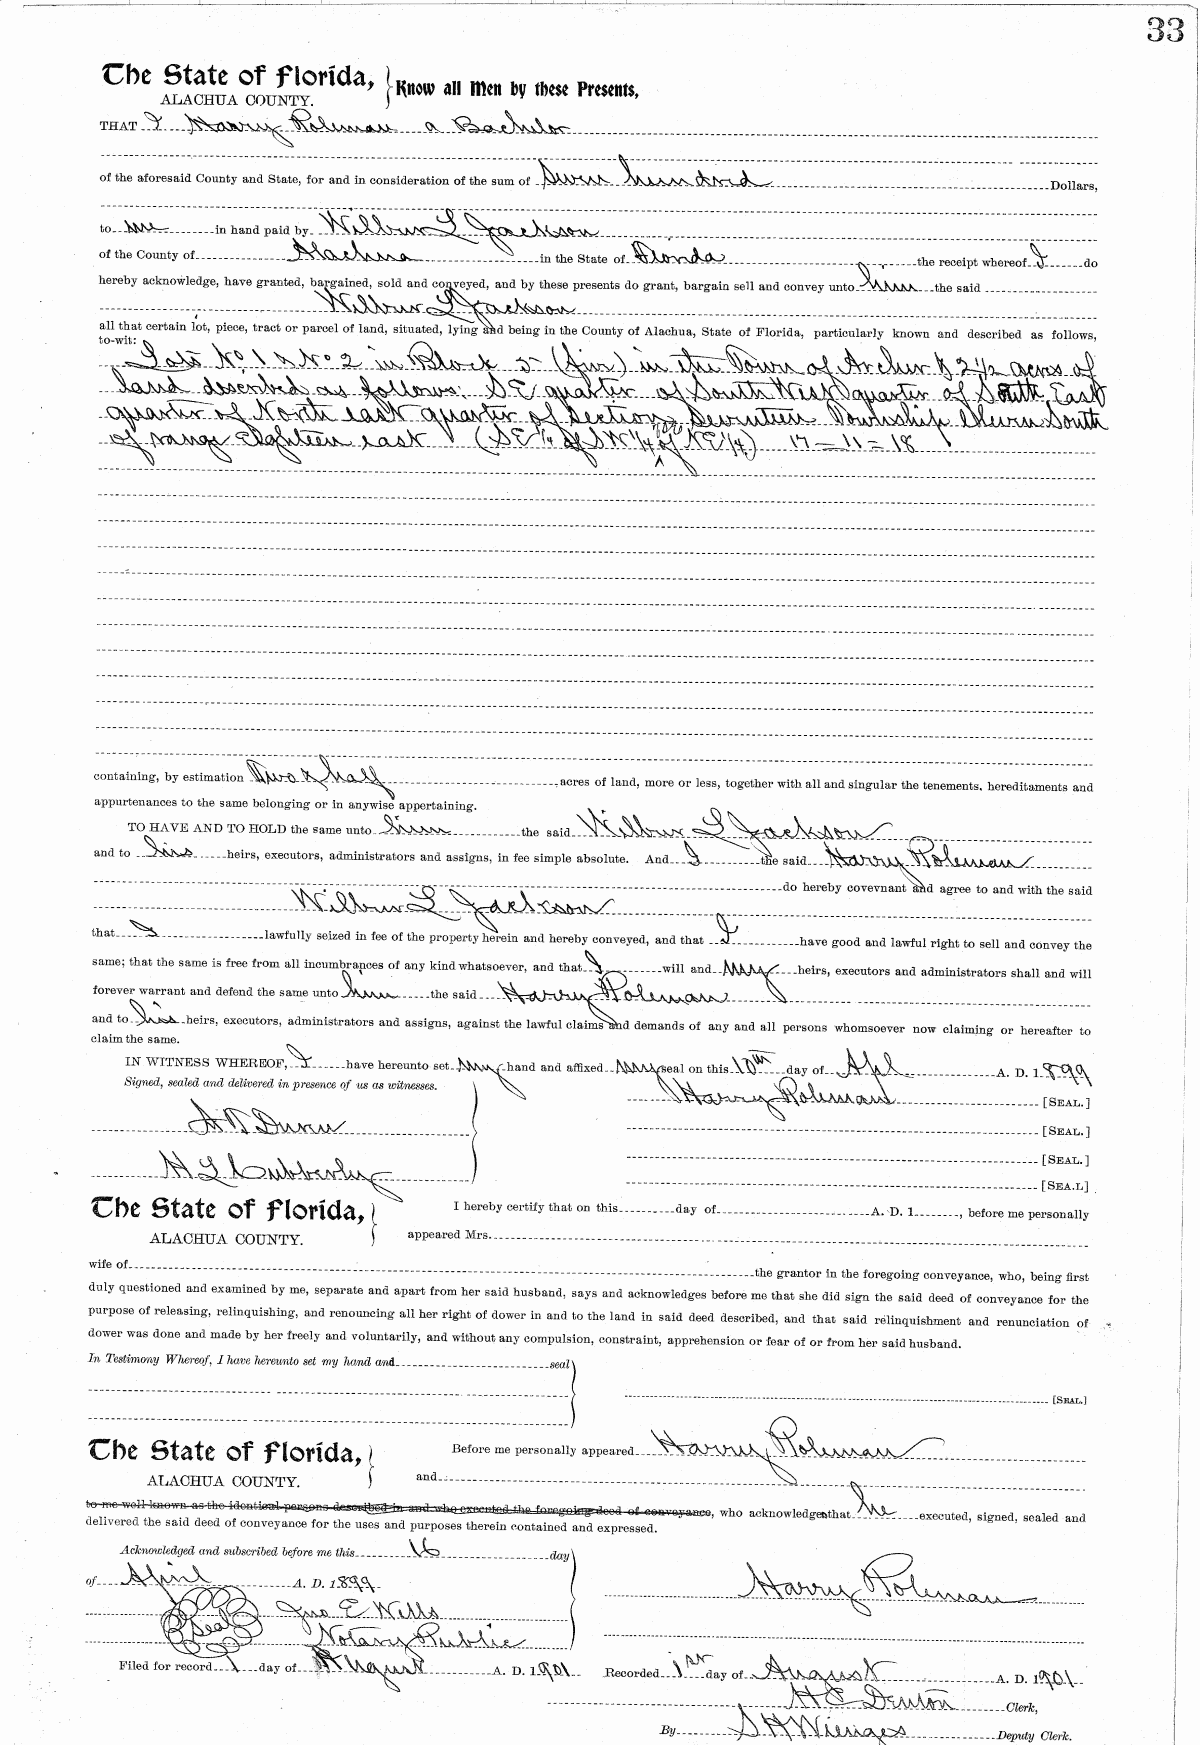 33
The State of Florida, Know all Men by these Presents,
ALACHUA COUNTY.
THAT I Harry Roleman a Bachelor
of the aforesaid County and State, for and in consideration of the sum of Seven hundred Dollars,
to me in hand paid by Wilbur L Jackson
of the County of Alachua in the State of Florida the receipt whereof I do
hereby acknowledge, have granted, bargained, sold and conveyed, and by these presents do grant, bargain sell and convey unto him the said
Wilbur L Jackson
all that certain lot, piece, tract or parcel of land, situated, lying and being in the County of Alachua, State of Florida, particularly known and described as follows,
to-wit:
Lots No 1 & No 2 in Block 5 (five) in the Town of Archer & 2 1/2 acres of
land described as follows: SE quarter of South West quarter of South East
quarter of North east quarter of Section Seventeen Township Eleven South
of range Eighteen east (SE 1/4 of SW 1/4 of NE 1/4) 17 = 11 = 18
containing, by estimation Two & half acres of land, more or less, together with all and singular the tenements, hereditaments and
appurtenances to the same belonging or in anywise appertaining.
TO HAVE AND TO HOLD the same unto him the said Wilbur L Jackson
and to his heirs, executors, administrators and assigns, in fee simple absolute. And I the said Harry Roleman
do hereby covevnant and agree to and with the said
Wilbur L Jackson
that I lawfully seized in fee of the property herein and hereby conveyed, and that I have good and lawful right to sell and convey the
same; that the same is free from all incumbrances of any kind whatsoever, and that I will and my heirs, executors and administrators shall and will
forever warrant and defend the same unto him the said Harry Roleman
and to his heirs, executors, administrators and assigns, against the lawful claims and demands of any and all persons whomsoever now claiming or hereafter to
claim the same.
IN WITNESS WHEREOF, I have hereunto set my hand and affixed my seal on this 10th day of Apl A. D. 1899
Signed, sealed and delivered in presence of us as witnesses.
Harry Roleman [SEAL.]
Dunn [SEAL.]
H L Cubberly [SEAL.]
[SEA.L]
The State of Florida, I hereby certify that on this day of A. D. 1 , before me personally
ALACHUA COUNTY. appeared Mrs.
wife of the grantor in the foregoing conveyance, who, being first
duly questioned and examined by me, separate and apart from her said husband, says and acknowledges before me that she did sign the said deed of conveyance for the
purpose of releasing, relinquishing, and renouncing all her right of dower in and to the land in said deed described, and that said relinquishment and renunciation of
dower was done and made by her freely and voluntarily, and without any compulsion, constraint, apprehension or fear of or from her said husband.
In Testimony Whereof, I have hereunto set my hand and seal
[SEAL.]
The State of Florida, Before me personally appeared Harry Roleman
ALACHUA COUNTY. and
to me well known as the identical persons described in and who executed the foregoing deed of conveyance, who acknowledged that he executed, signed, sealed and
delivered the said deed of conveyance for the uses and purposes therein contained and expressed.
Acknowledged and subscribed before me this 16 day
of April A. D. 1899
Harry Roleman
Jno E Wells
Seal Notary Public
Filed for record 1 day of August A. D. 1901 Recorded 1st day of August A. D. 1901
H C Denton Clerk,
By S H Wienges Deputy Clerk.